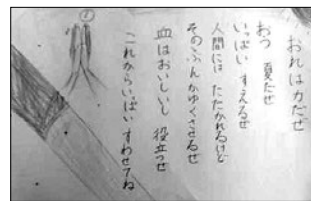 おれは力だぜ
おっ 夏だぜ
いっぱい すえるぜ
人間には たたかれるけど
そのぶんかゆくさせるぜ
血はおいしいし 役立つぜ
これからいぱい すわせてね